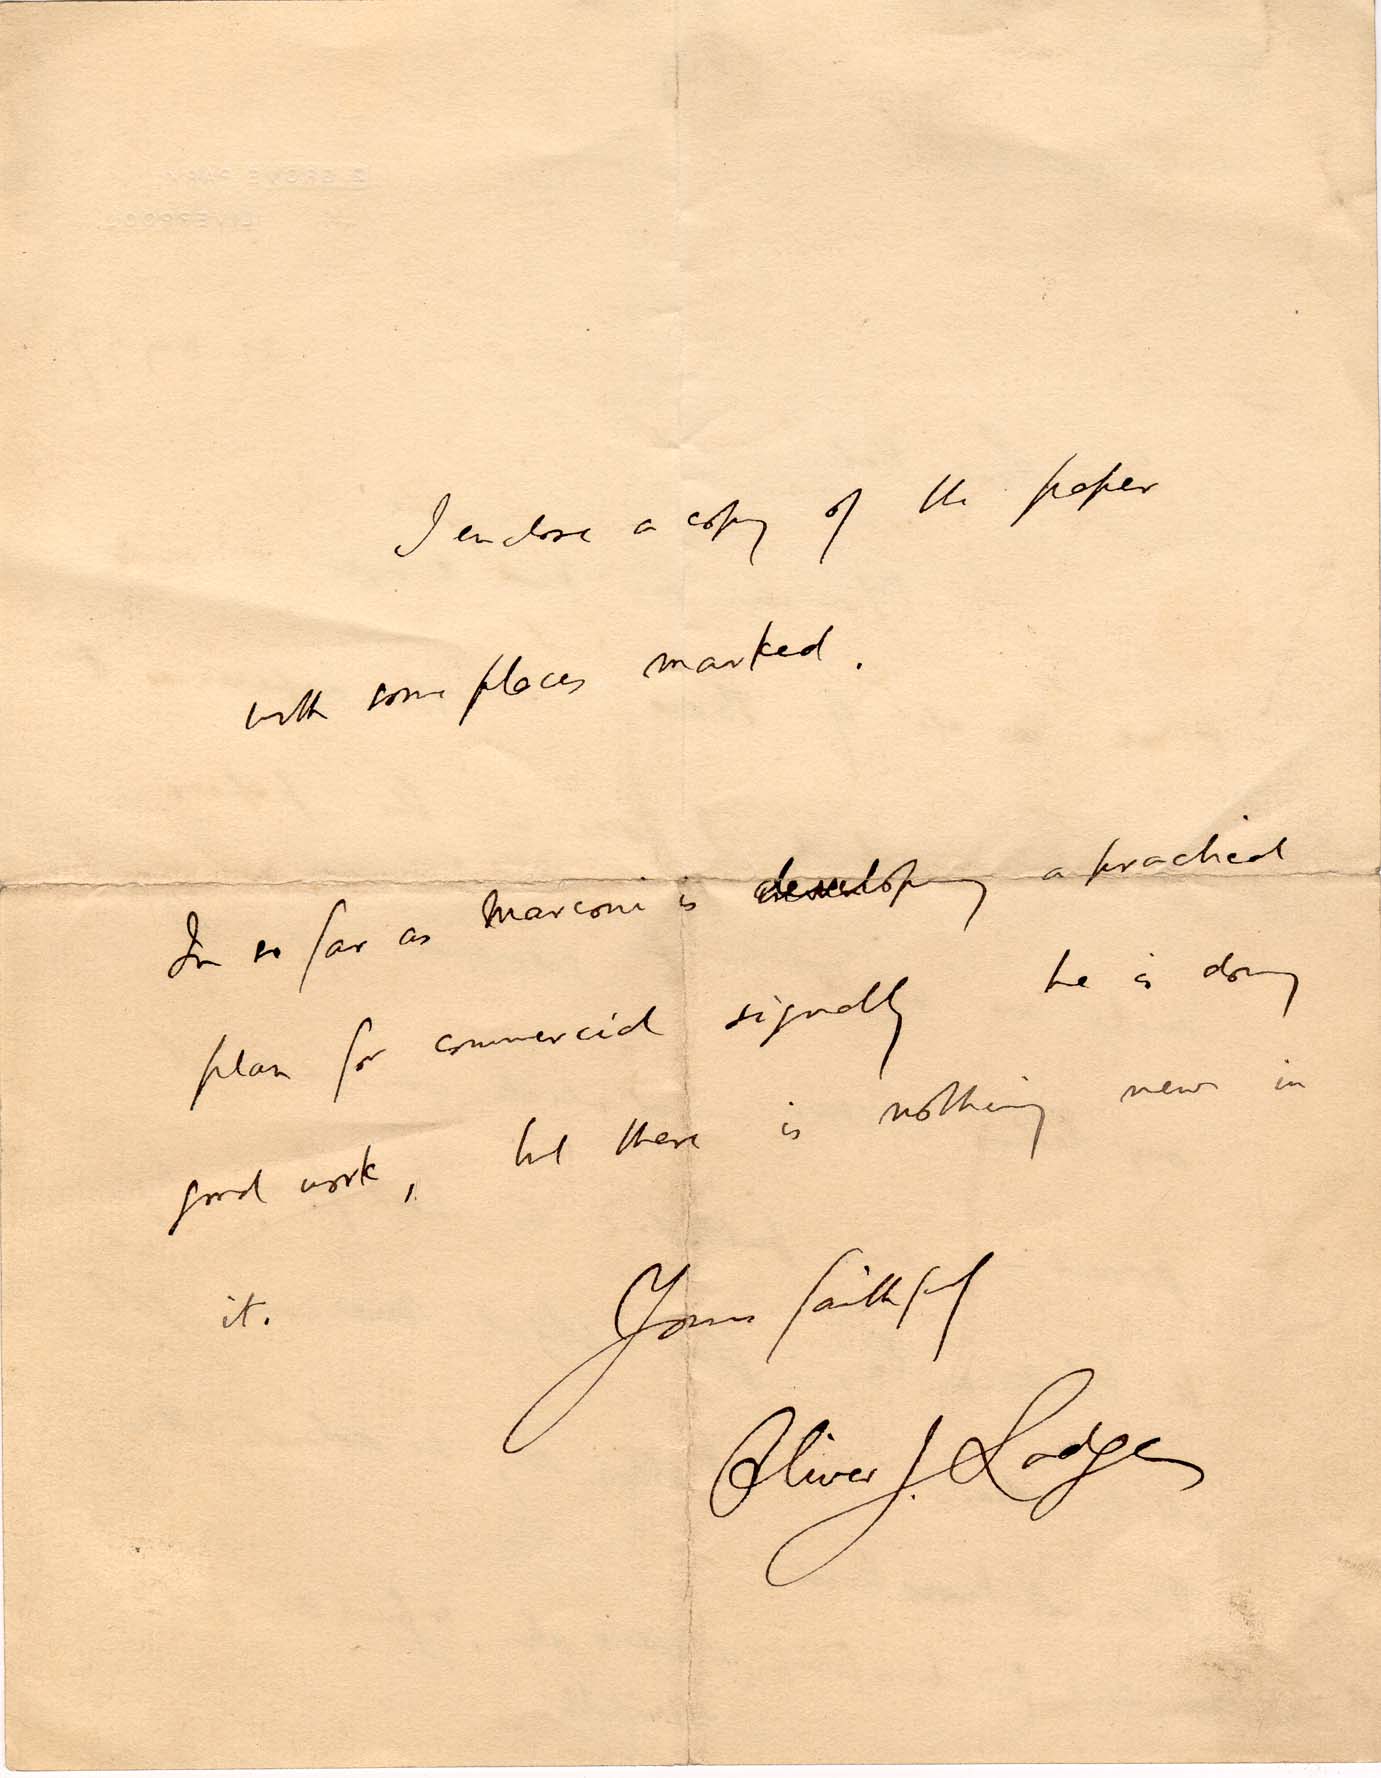 2 GROVE PARK
LIVERPOOL
I enclose a copy of the paper
with some places marked.
In so far as Marconi is developing a practical
plan for commercial signally he is doing
good work, but there is nothing new in
it.
Yours faithfully
Oliver J. Lodge